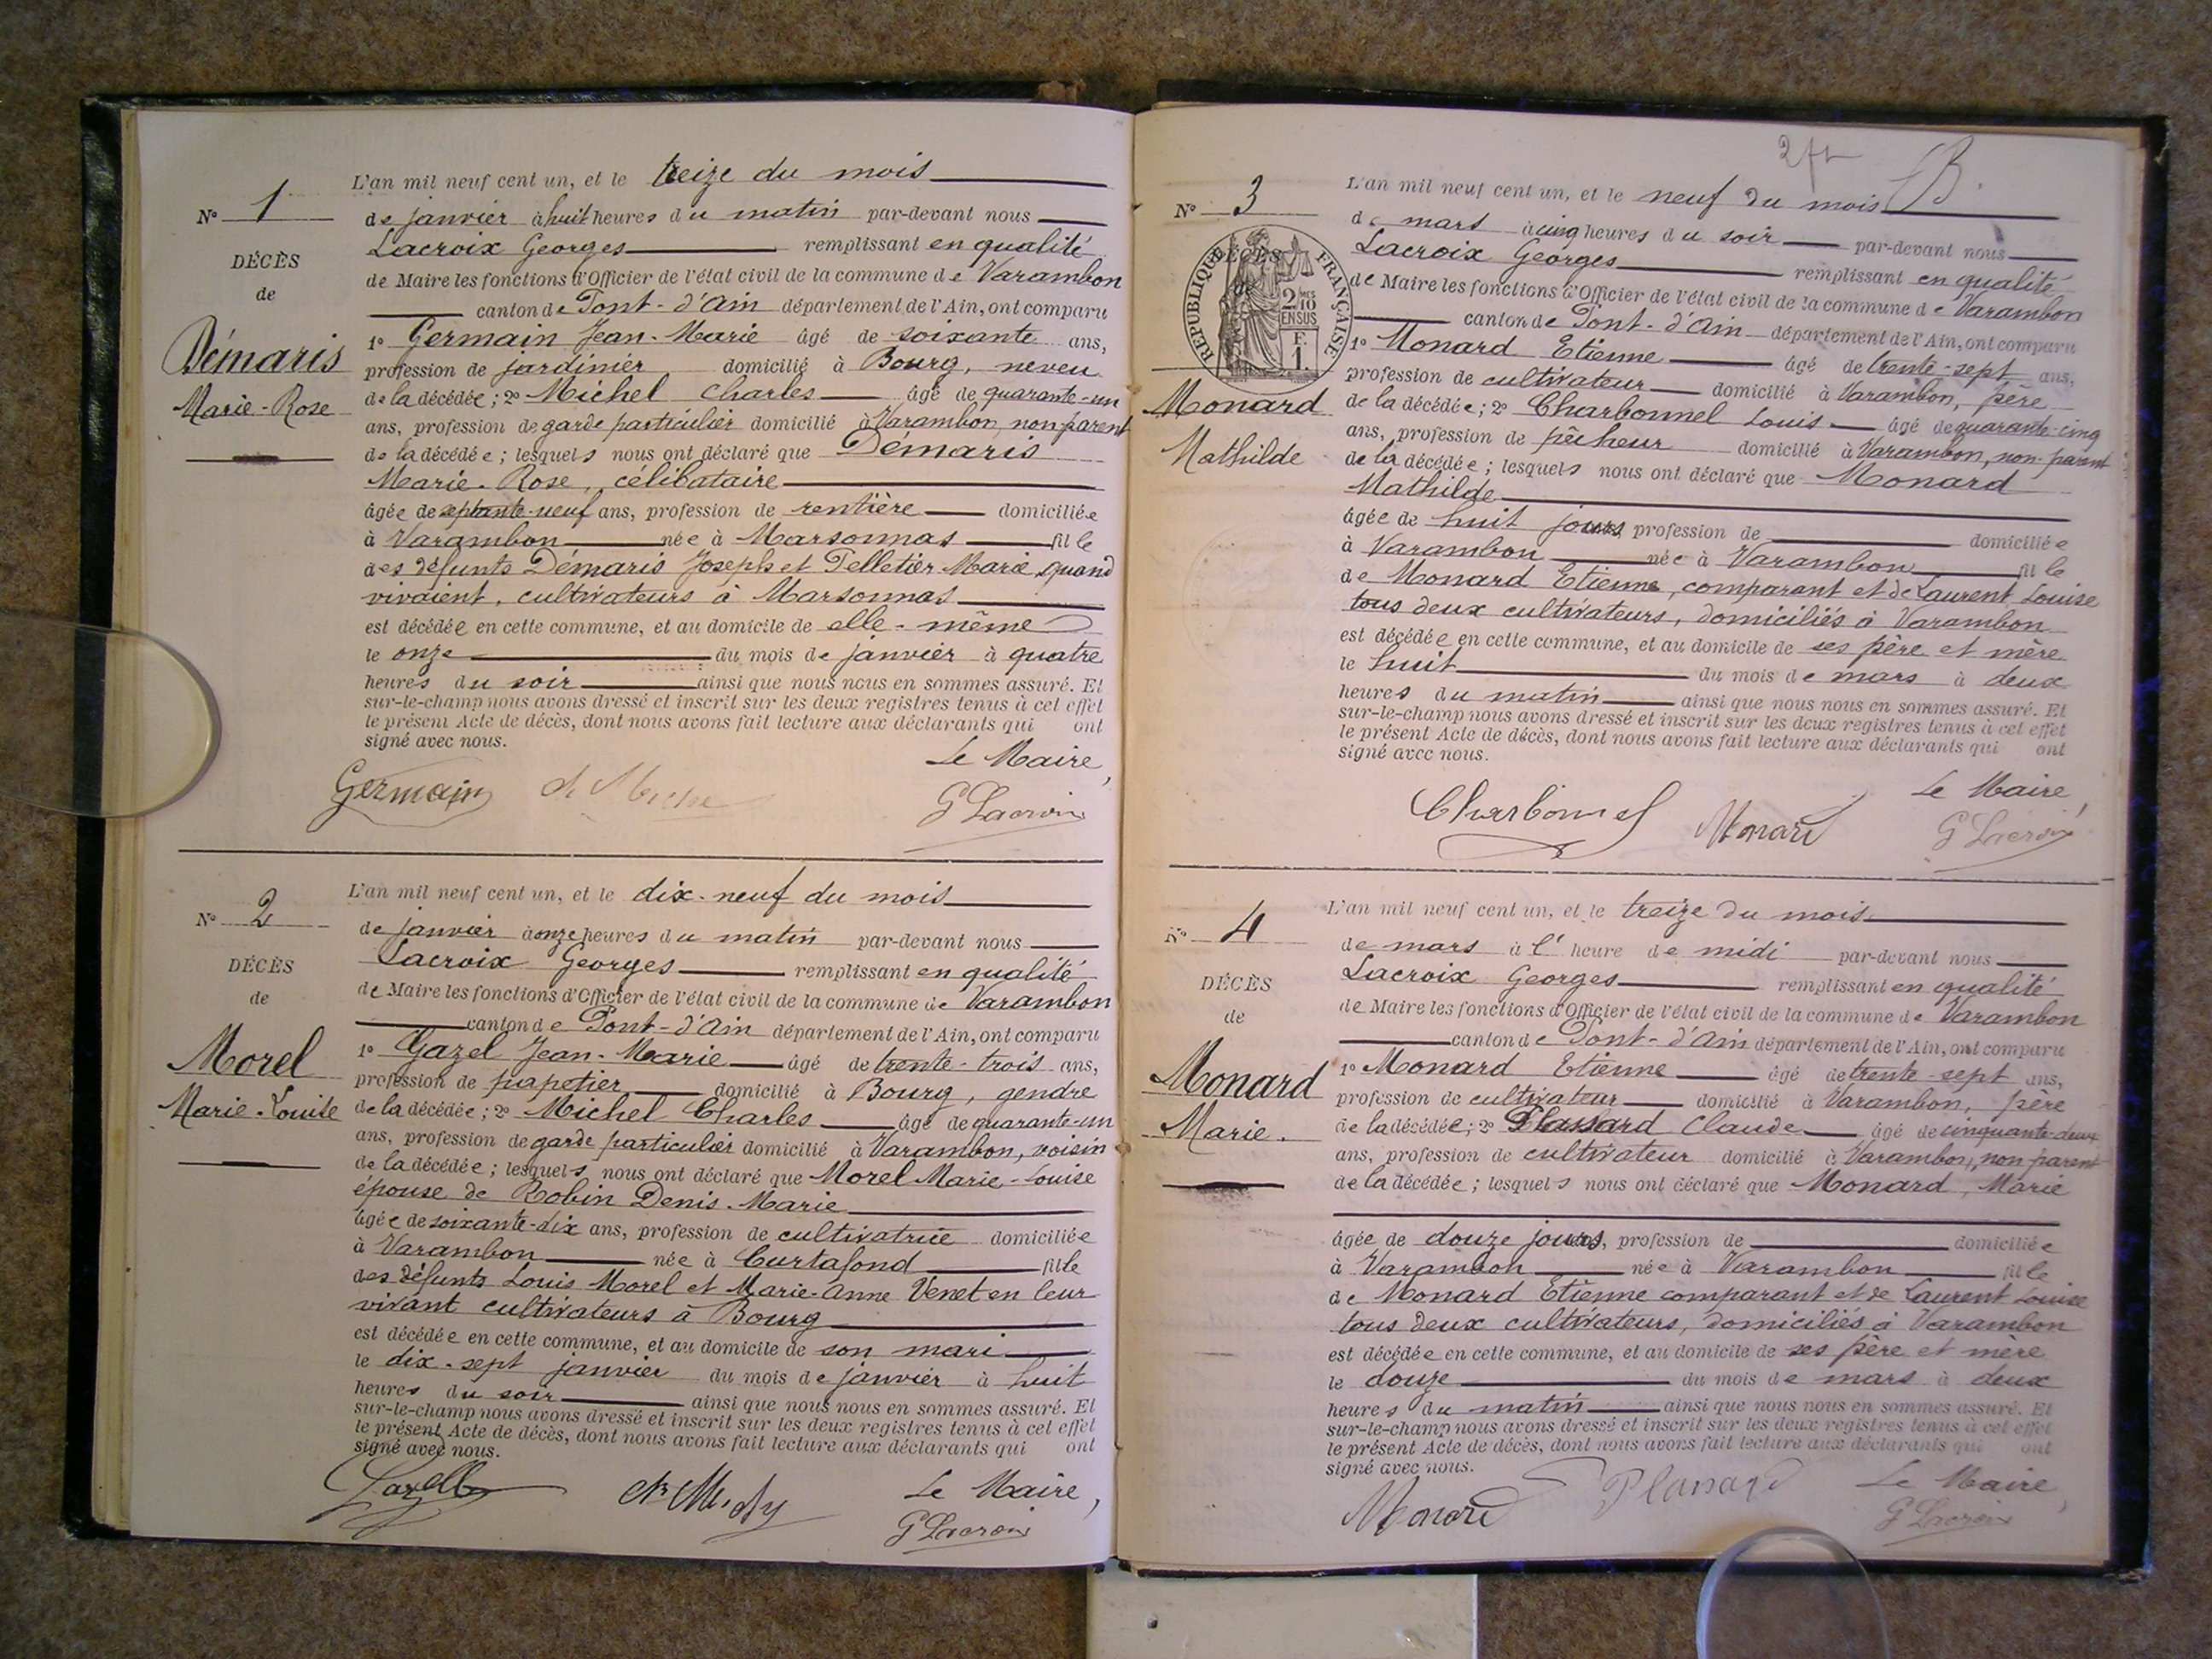 N° 1
DÉCÈS
de
Démaris
Marie-Rose
L'an mil neuf cent un, et le treize du mois
de janvier à huit heures du matin par-devant nous
Lacroix Georges remplissant en qualité
de Maire les fonctions d'Officier de l'état civil de la commune de Varambon
canton de Pont-d'Ain département de l'Ain, ont comparu
1° Germain Jean-Marie âgé de soixante ans,
profession de jardinier domicilié à Bourg, neveu
de la décédée; 2° Michel Charles âgé de quarante-un
ans, profession de garde particulier domicilié à Varambon, non parent
de la décédée; lesquels nous ont déclaré que Démaris
Marie-Rose, célibataire
âgée de septante-neuf ans, profession de rentière domiciliée
à Varambon née à Marsonnas fille
des défunts Démaris Joseph et Pelletier Marie, quand
vivaient, cultivateurs à Marsonnas
est décédée en cette commune, et au domicile de elle-même
le onze du mois de janvier à quatre
heures du soir ainsi que nous nous en sommes assuré. Et
sur-le-champ nous avons dressé et inscrit sur les deux registres tenus à cet effet
le présent Acte de décès, dont nous avons fait lecture aux déclarants qui ont
signé avec nous.
Le Maire,
Germain
G Lacroix
N° 2
DÉCÈS
de
Morel
Marie-Louise
L'an mil neuf cent un, et le dix-neuf du mois
de janvier à onze heures du matin par-devant nous
Lacroix Georges remplissant en qualité
de Maire les fonctions d'Officier de l'état civil de la commune de Varambon
canton de Pont-d'Ain département de l'Ain, ont comparu
1° Gazel Jean-Marie âgé de trente-trois ans,
profession de papetier domicilié à Bourg, gendre
de la décédée; 2° Michel Charles âgé de quarante-un
ans, profession de garde particulier domicilié à Varambon, voisin
de la décédée; lesquels nous ont déclaré que Morel Marie-Louise
épouse de Robin Denis-Marie
âgée de soixante-dix ans, profession de cultivatrice domiciliée
à Varambon née à Curtafond fille
des défunts Louis Morel et Marie-Anne Venet en leur
vivant cultivateurs à Bourg
est décédée en cette commune, et au domicile de son mari
le dix-sept janvier du mois de janvier à huit
heures du soir ainsi que nous nous en sommes assuré. Et
sur-le-champ nous avons dressé et inscrit sur les deux registres tenus à cet effet
le présent Acte de décès, dont nous avons fait lecture aux déclarants qui ont
signé avec nous.
Le Maire,
G Lacroix
N° 3
DÉCÈS
de
RÉPUBLIQUE FRANÇAISE
2 MES 10 EN SUS
F. 1.
Monard
Mathilde
L'an mil neuf cent un, et le neuf du mois
de mars à cinq heures du soir par-devant nous
Lacroix Georges remplissant en qualité
de Maire les fonctions d'Officier de l'état civil de la commune de Varambon
canton de Pont-d'Ain département de l'Ain, ont comparu
1° Monard Etienne âgé de trente-sept ans,
profession de cultivateur domicilié à Varambon, père
de la décédée; 2° Charbonnel Louis âgé de quarante-cinq
ans, profession de pêcheur domicilié à Varambon, non-parent
de la décédée; lesquels nous ont déclaré que Monard
Mathilde
âgée de huit jours, profession de domiciliée
à Varambon née à Varambon fille
de Monard Etienne, comparant et de Laurent Louise
tous deux cultivateurs, domiciliés à Varambon
est décédée en cette commune, et au domicile de ses père et mère
le huit du mois de mars à deux
heures du matin ainsi que nous nous en sommes assuré. Et
sur-le-champ nous avons dressé et inscrit sur les deux registres tenus à cet effet
le présent Acte de décès, dont nous avons fait lecture aux déclarants qui ont
signé avec nous.
Le Maire,
Charbonnel
Monard
G Lacroix
N° 4
DÉCÈS
de
Monard
Marie.
L'an mil neuf cent un, et le treize du mois
de mars à l'heure de midi par-devant nous
Lacroix Georges remplissant en qualité
de Maire les fonctions d'Officier de l'état civil de la commune de Varambon
canton de Pont-d'Ain département de l'Ain, ont comparu
1° Monard Etienne âgé de trente-sept ans,
profession de cultivateur domicilié à Varambon, père
de la décédée; 2° Plassard Claude âgé de cinquante-deux
ans, profession de cultivateur domicilié à Varambon, non parent
de la décédée; lesquels nous ont déclaré que Monard, Marie
âgée de douze jours, profession de domiciliée
à Varambon née à Varambon fille
de Monard Etienne comparant et de Laurent Louise
tous deux cultivateurs, domiciliés à Varambon
est décédée en cette commune, et au domicile de ses père et mère
le douze du mois de mars à deux
heures du matin ainsi que nous nous en sommes assuré. Et
sur-le-champ nous avons dressé et inscrit sur les deux registres tenus à cet effet
le présent Acte de décès, dont nous avons fait lecture aux déclarants qui ont
signé avec nous.
Le Maire,
Monard
Plassard
G Lacroix